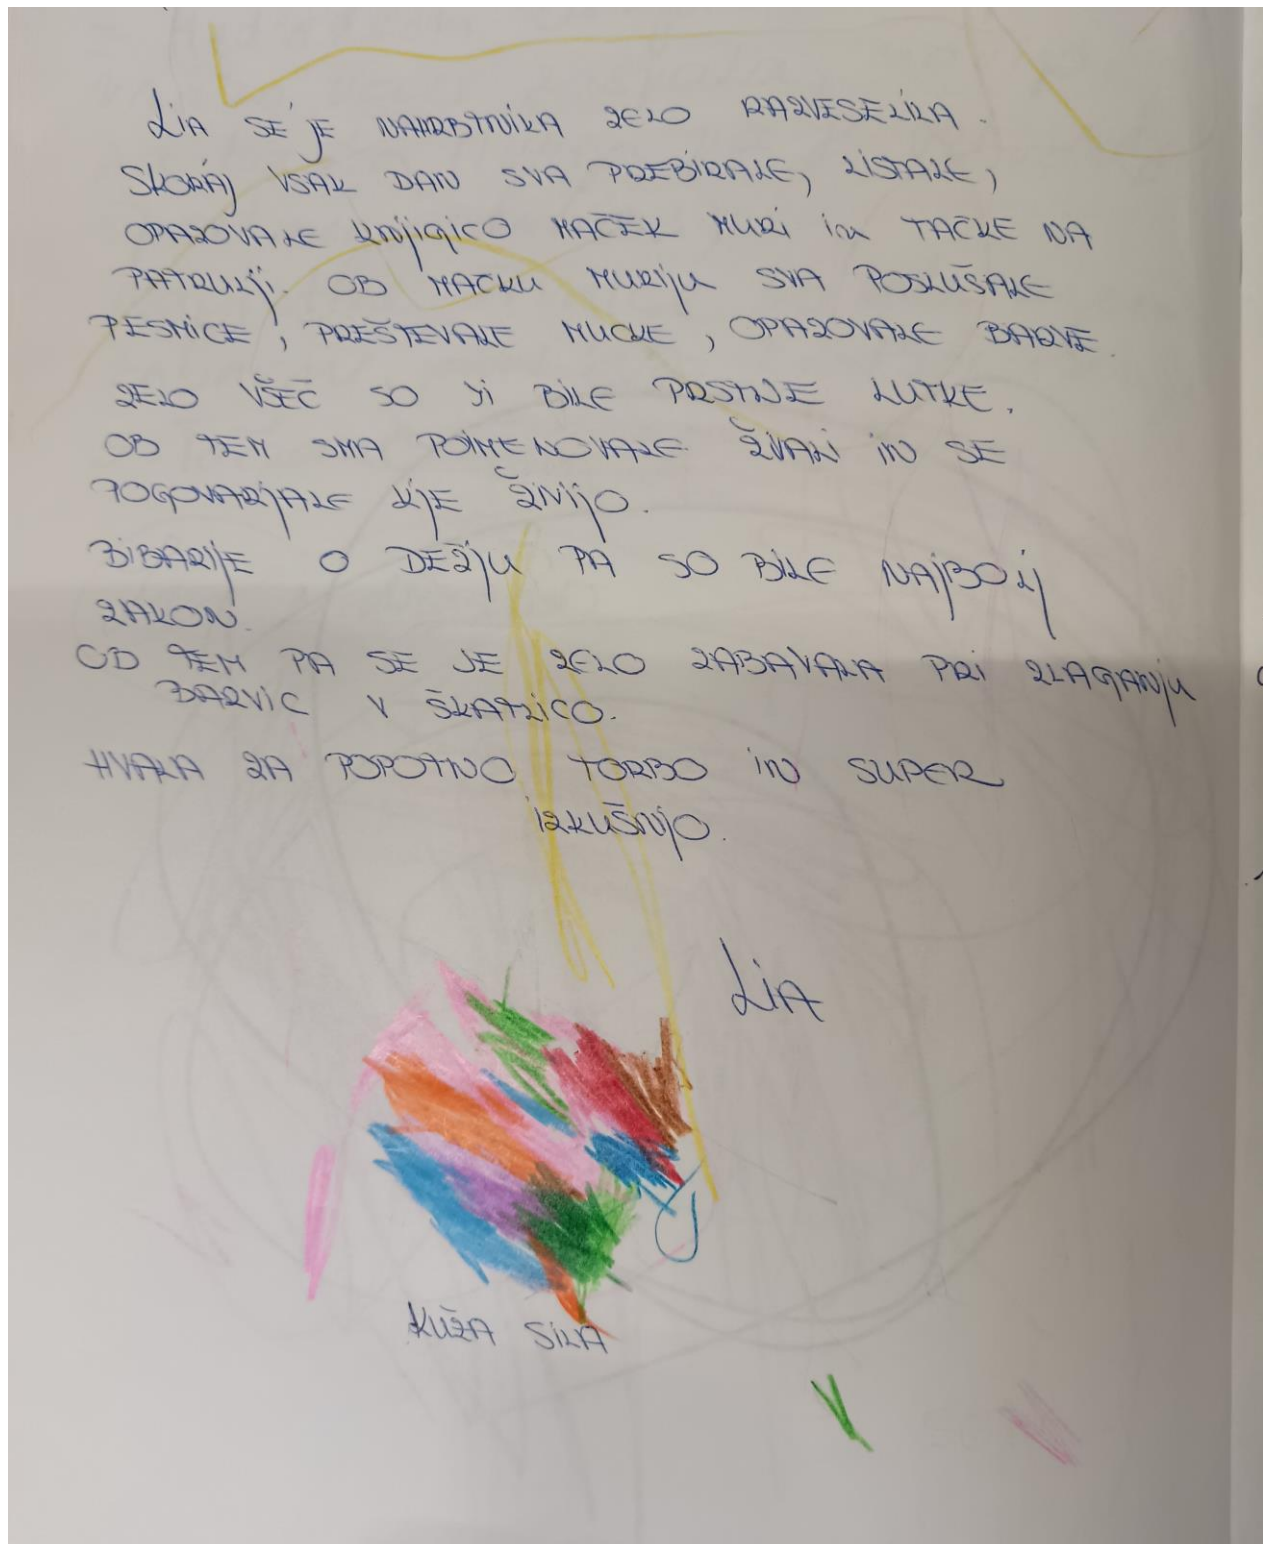 LIA SE JE NAHRBTNIKA ZELO RAZVESELILA.
SKORAJ VSAK DAN SVA PREBIRALE, LISTALE,
OPAZOVALE KNJIGICO MAČEK MURI in TAČKE NA
PATRULJI. OB MAČKU MURIJU SVA POSLUŠALE
PESMICE, PREŠTEVALE MUCKE, OPAZOVALE BARVE.
ZELO VŠEČ SO JI BILE PRSTNE LUTKE.
OB TEM SMA POIMENOVALE ŽIVALI IN SE
POGOVARJALE KJE ŽIVIJO.
BIBARIJE O DEŽJU PA SO BILE NAJBOLJ
ZAKON.
OD TEM PA SE JE ZELO ZABAVALA PRI ZLAGANJU
BARVIC V ŠKATLICO.
HVALA ZA POPOTNO TORBO IN SUPER
IZKUŠNJO.
LIA
KUŽA SILA